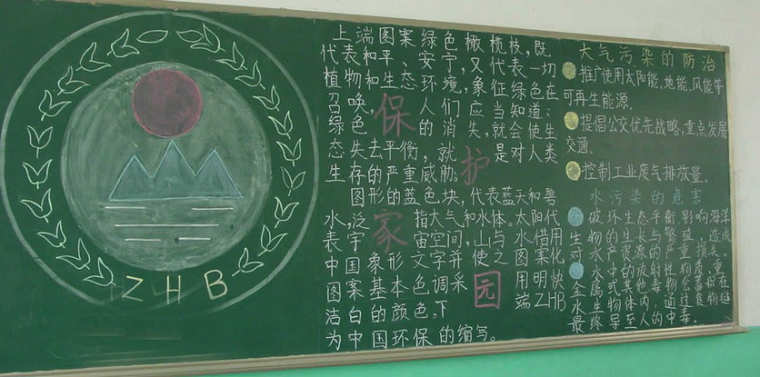 ZHB
上端图案绿色橄榄枝，既
代表和平、安宁，又代表一切
植物和生态环境，象征绿色在
召唤，人们应当知道：
绿色的消失，就会使生
态失去平衡，就是对人类
生存的严重威胁。
图形的蓝色块，代表蓝天和碧
水，泛指大气和水体。太阳代
表宇宙空间，山与水借用
中国象形文字使之图案化
图案基本色调采用明快
洁白的颜色，下端ZHB
为中国环保的缩写。
保护家园
大气污染的防治
推广使用太阳能、地能、风能等
可再生能源.
提倡公交优先战略，重点发展
交通.
控制工业废气排放量.
水污染的危害
破坏生态平衡，影响海洋
生物的生长与繁殖，
对水产资源严重损失。